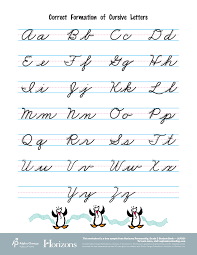 Correct Formation of Cursive Letters
Aa Bb Cc Dd
Ee Ff Gg Hh
Ii Jj Kk Ll
Mm Nn Oo Pp
Qq Rr Ss Tt
Uu Vv Ww Xx
Yy Zz
Horizons